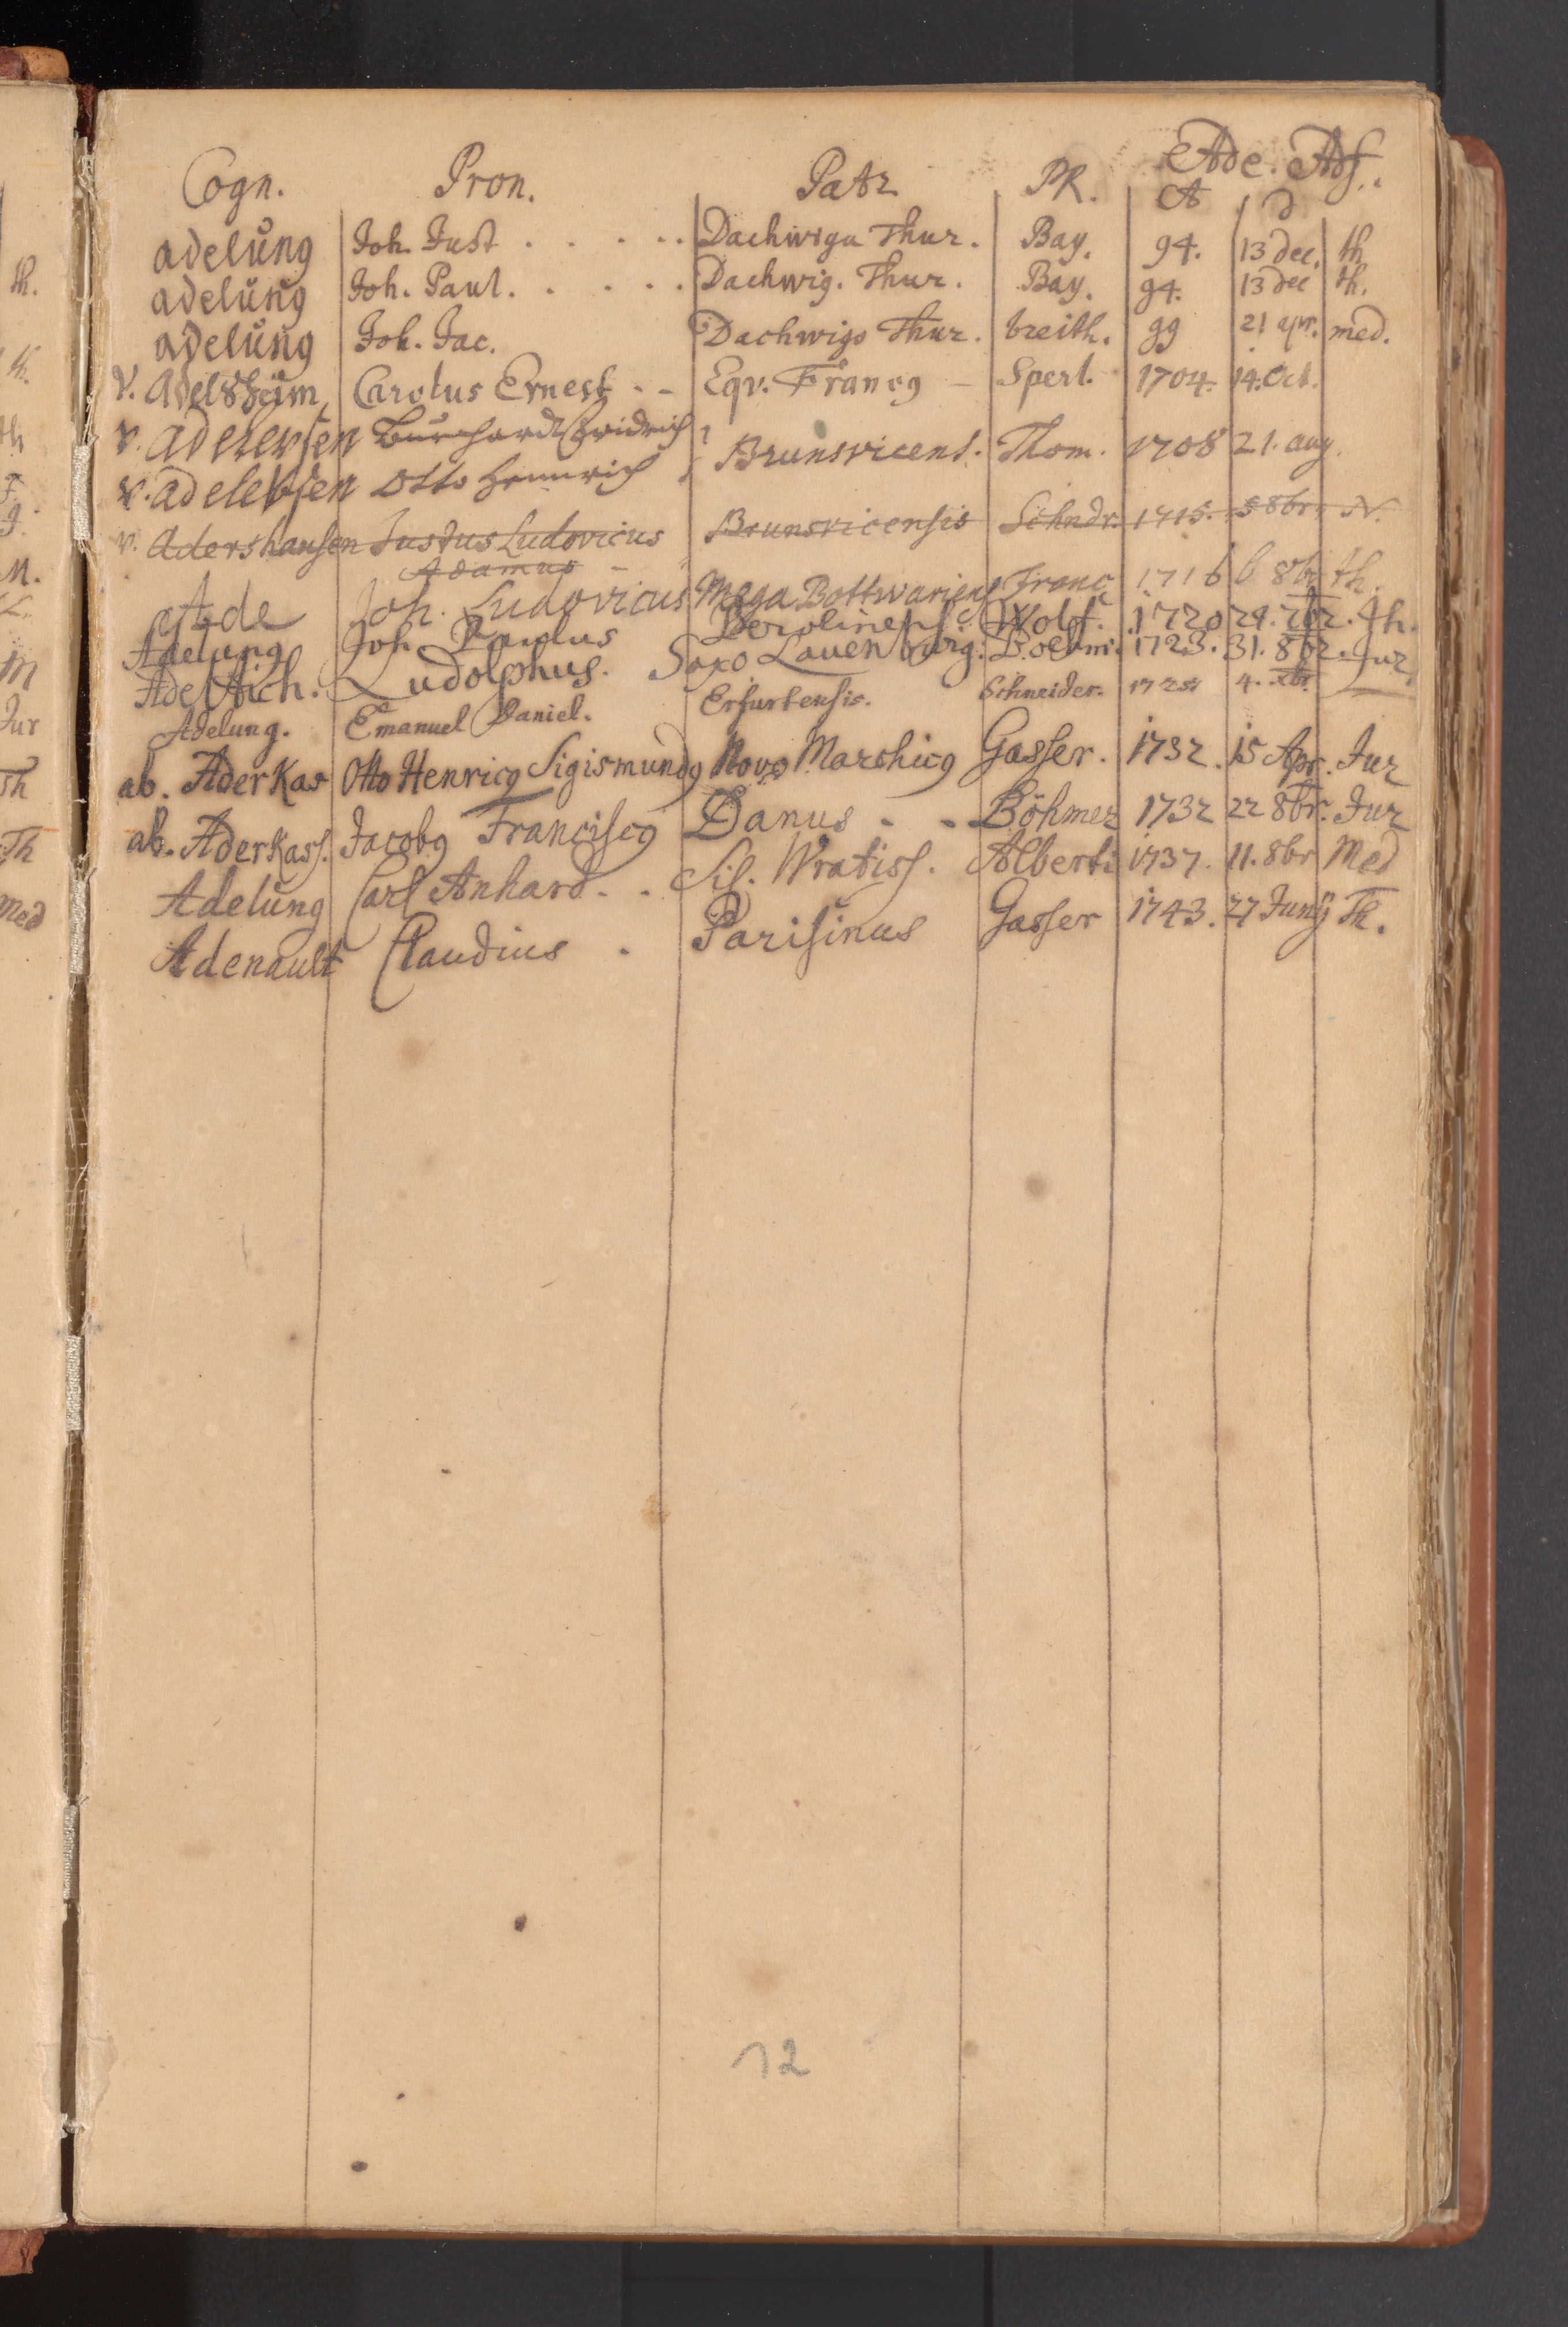 Ade. Adf.
Cogn. Pron. Patr. PR. A d
adelung Joh. Just . . . . . Dachwiga Thur. Bay. 94. 13 dec. th
adelung Joh. Paul. . . . . Dachwig. Thur. Bay. 94. 13 dec th.
adelung Joh. Jac. Dachwigo Thur. breith. 99 21 apr. med.
V. Adelsheim, Carolus Ernest - - Eqv. Francq - Sperl. 1704. 14. Oct.
v. adelevsen Burchardt Fridrich
Brunsvicens. Thom. 1708 21. aug.
v. adelebsen Otto Heinrich
v. Adershausen Justus Ludovicus Brunsvicensis Schndr. 1715. 5 8br. N.
Adamus -
Ade Joh. Ludovicus Mega Bottwariens Franc 1716 6 8br th.
Adelung Joh. Paulus Berolinens. Wolf. 1720 29. th.
Adel Aich. Ludolphus. Saxo Lauenburg. Boehm. 1723. 31. 8br. Jur.
Adelung. Emanuel Daniel. Erfurtensis. Schneider. 4. xbr.
ab. AderKas Otto Henricq Sigismundq Novo Marchicq Gasser. 1732. 15 Apr. Jur
ab. AderKass. Jacobq Franciscq Danus - - Böhmer 1732 22 8br. Jur
Adelung Carl Anhard - . Sil. Wratisl. Alberti 1737. 11. 8br Med
Adenault Claudius . Parisinus Gasser 1743. 27 Junÿ Th.
12